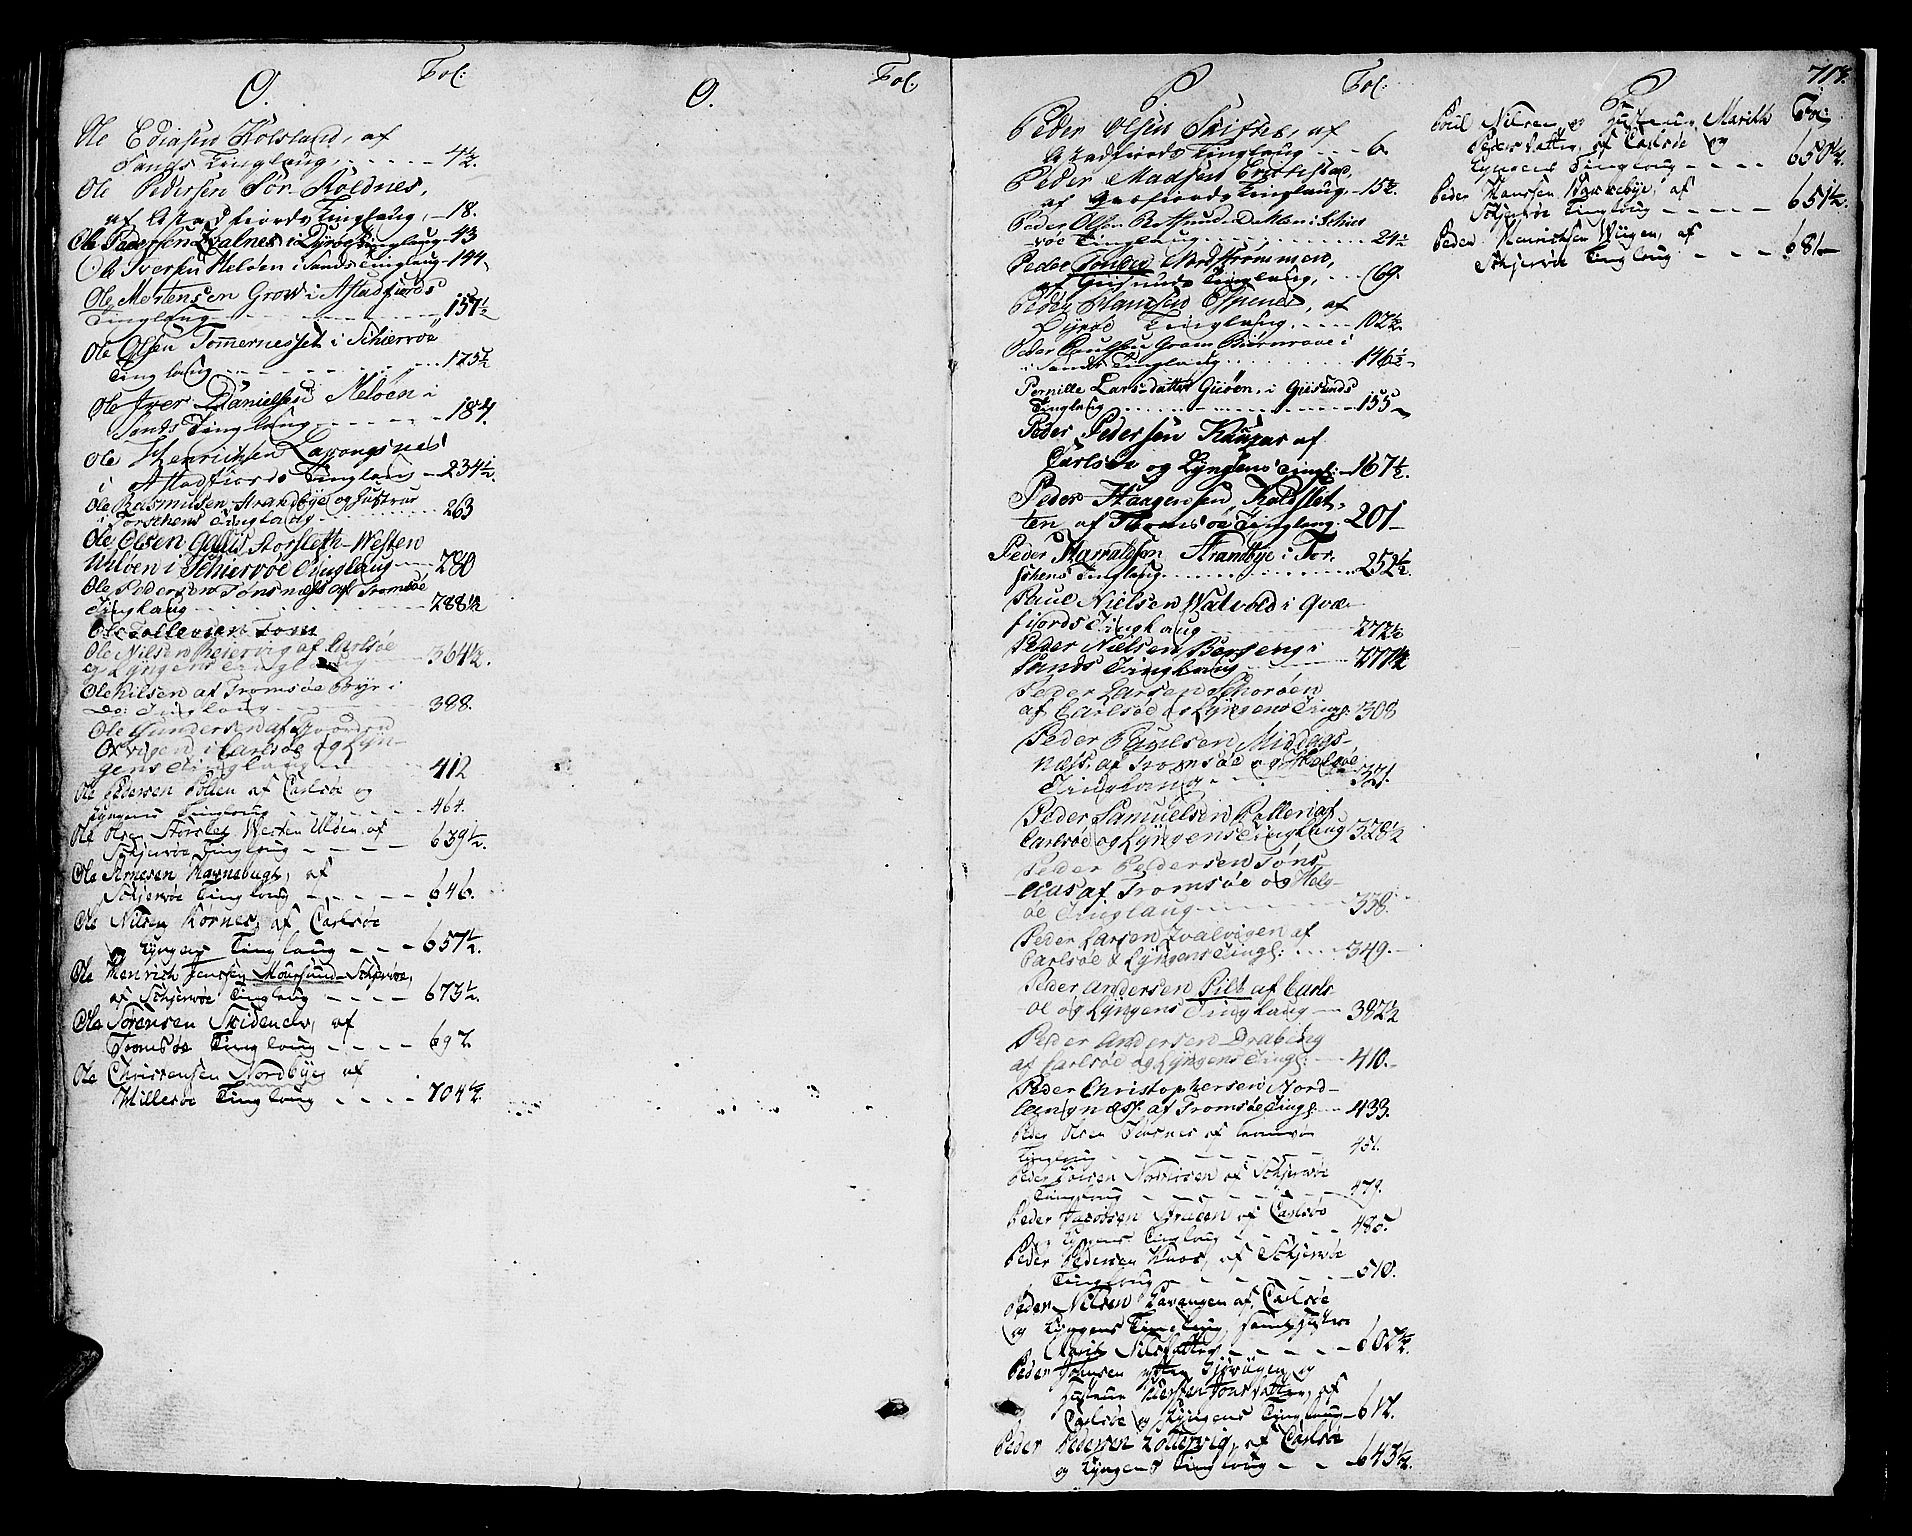 O. Fol:
Ole Ediasen Kolsland, af
Sands Tinglaug, 4½.
Ole Pedersen Sør. Koldnes,
af Astadfiords Tinglaug, 18.
Ole Pedersen Qvalnes i Dyrøe Tinglaug 43
Ole Iversen Meløen i Sands Tinglaug 144
Ole Mortensen Grow i Astadfiords
Tinglaug 157½
Ole Olsen Tømernesset i Schiervøe
Tinglaug 175½
Ole Iver Danielsen Meløen i
Sands Tinglaug 184.
Ole Henrichsen Lavongsnes
i Astadfiords Tinglau 234½.
Ole Rasmusen Strandbye og Hustrue
i Torschens Tinglaug 263
Ole Olsen Gallis Storsleth Westen
Uløen i Schiervøe Tinglaug 280
Ole Pedersen Tønsnæs af Tromsøe
Tinglaug 288½
Ole Tollevsen Tom
Ole Nilsen af Carlsøe
og Lyngens Tinglaug 364½.
Ole Nilsen af Tromsøe Byr i
Do: Tinglaug 398.
Ole Gundersen af
Oxvigen i Carlsøe og Lyn-
gens Tinglaug 412
Ole Pedersen Pollen af Carlsøe og
Lyngens Tinglaug 464.
Ole Olsen Storslet Westen Uløen af
Schjervøe Tinglaug 639½.
Ole Arnesen Havnebugt, af
Schjervøe Tinglaug 646.
Ole Nilsen Kornes, af Carlsøe
og Lyngens Tinglaug 657½.
Ole Henrich Jenssen Maursund Schjervøe,
af Schjervøe Tinglaug 673½.
Ole Sørensen Skidenelv, af
Tromsøe Tinglaug 697.
Ole Christensen Nordbye, af
Hillesøe Tinglaug 704½.
O. Fol.
P Fol:
Peder Olsen Skiftes, af
Astadfiords Tinglaug 6.
Peder Madsen
af Qvæfiords Tinglaug, 15½.
Peder Olsen i Schier
vøe Tinglaug 24½
Peder Tønder Nordstrømmen,
af Giisunds Tinglaug, 69.
Peder Hansen Espenes, af
Dyrøe Tinglaug 102½.
Peder Paulsen Grams Biørnraae i
Sands Tinglaug 146½
Pernille Larsdatter Gisøen, i Giisunds
Tinglaug 155
Peder Pedersen af
Carlsøe og Lyngens Tingl: 167½.
Peder Haagensen Koldslet-
ten af Tromsøe Tinglaug. 201
Peder Haraldsen Strandbye i Tor
schens Tinglaug 252½.
Paul Nielsen Watvold i Qvæ-
fiords Tinglaug 272½
Peder Nielsen Bergeng i
Sands Tinglaug 277½
Peder Larsen Schorøen
af Carlsøe og Lyngens Tingl: 308
Peder Paulsen Middags-
næss. af Tromsøe og Helgøe
Tinglaug 321.
Peder Samuelsen Pollen af
Carlsøe og Lyngens Tinglaug 328½
Peder Pedersen Tøns-
af Tromsøe og Helg-
øe Tinglaug 338.
Peder Larsen Qvalvigen af
Carlsøe & Lyngens Tingl: 349.
Peder Andersen Pilt af Carls-
øe og Lyngens Tinglaug 382½
Peder Andersen Drabeng
af Carlsøe og Lyngens Tingl: 410.
Peder Christophersen Nord-
af Tromsøe Tingl. 433.
Peder Olsen af Tromsøe
Tinglaug 451.
Peder af Schjervøe
Tinglaug 479.
Peder Jacobsen af Carlsøe
Lyngens Tinglaug 485.
Peder Pedersen af Schjervøe
Tinglaug 510.
Peder Nilsen Havangen af Carlsøe
og Lyngens Tinglaug, samt Hustrue
Marit Nilsdatter 607½.
Peder og
Hustrue Jonsdatter, af
Carlsøe og Lyngens Tinglaug 617.
Peder Pedersen af Carlsøe
og Lyngens Tinglaug 643½.
P 718.
Fol:
Poul Nilsen og Hustrue, Marith
Pedersdatter, af Carlsøe og
Lyngens Tinglaug 650½.
Peder Hanssen Bakkebye, af
Schjervøe Tinglaug 651½.
Peder Henrichsen Wiigen, af
Schjervøe Tinglaug 681